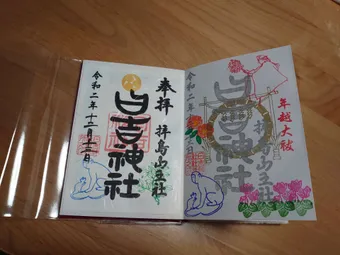 奉拝
拝島山王社
日吉神社
令和二年十二月十三日
年越大祓
拝島山王社
日吉神社